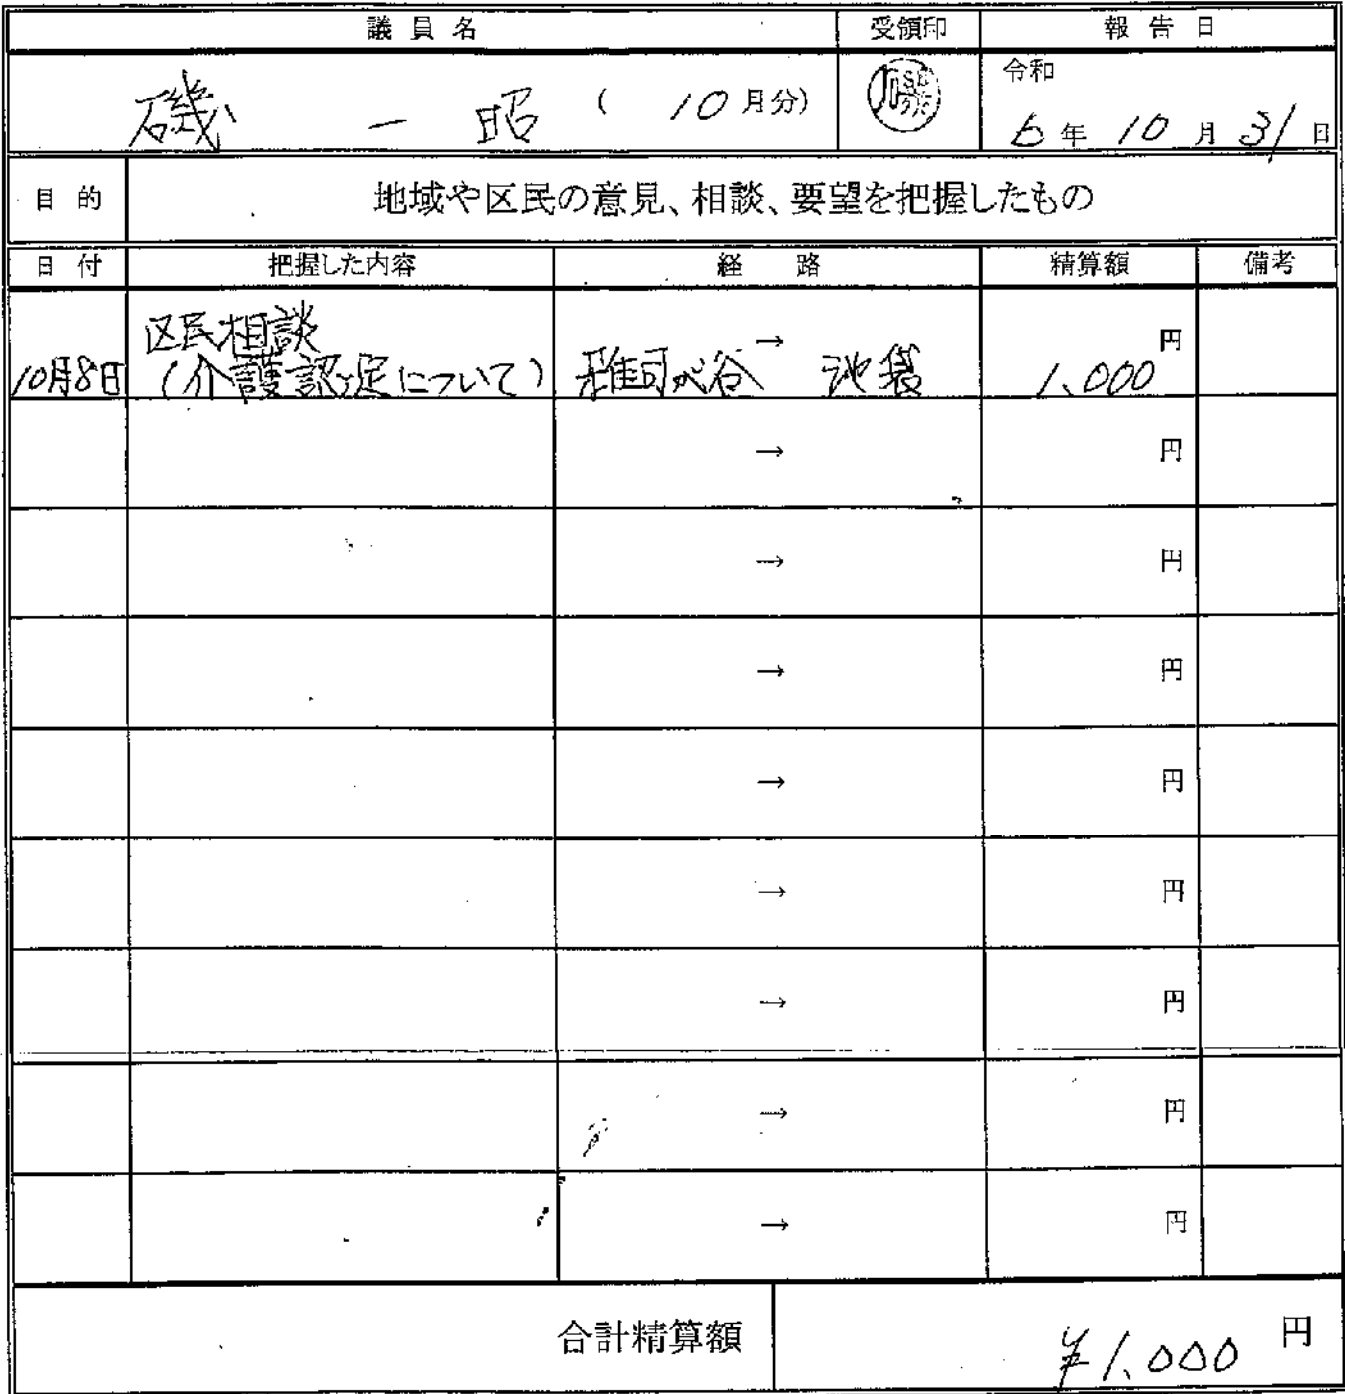 議員名 受領印 報告日
磯 一昭 ( 10月分) 令和
6年10月31日
目的 地域や区民の意見、相談、要望を把握したもの
日付 把握した内容 経路 精算額 備考
区民相談 → 円
10月8日 (介護認定について) 雑司が谷 池袋 1,000
→ 円
→ 円
→ 円
→ 円
→ 円
→ 円
→ 円
→ 円
合計精算額 ¥1,000 円